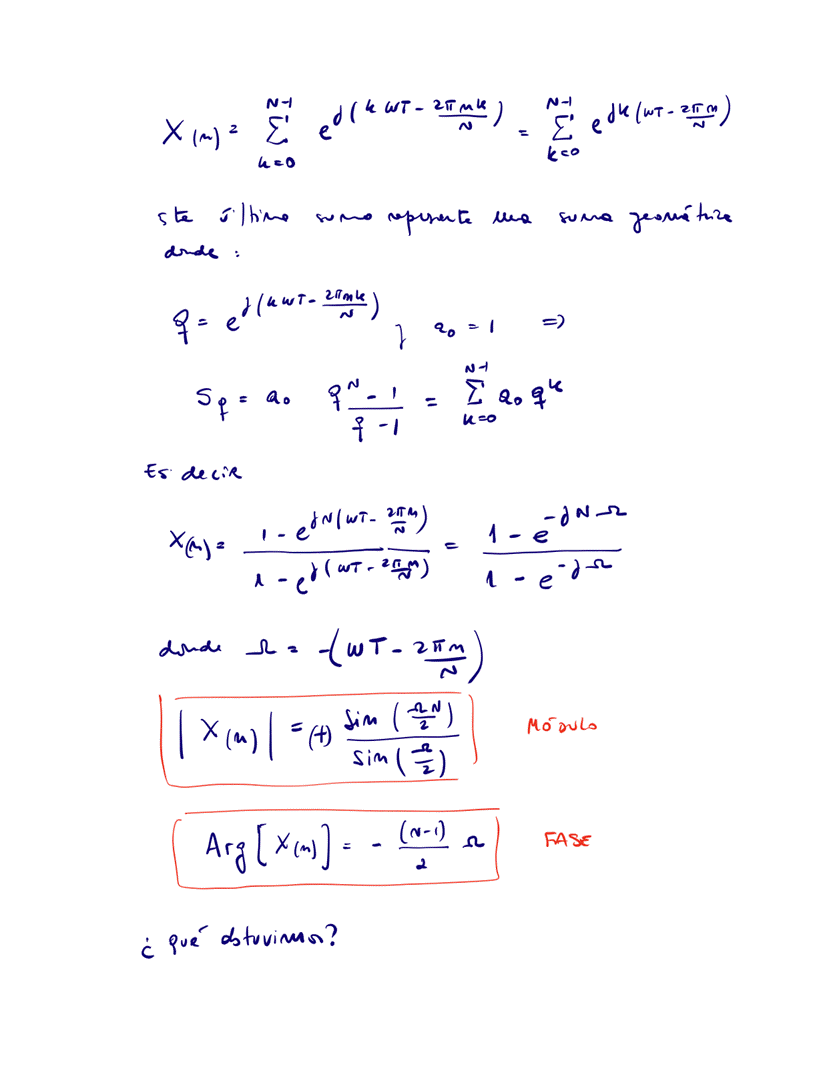 X(n) = \sum_{k=0}^{N-1} e^{j(k wT - \frac{2πnk}{N})} = \sum_{k=0}^{N-1} e^{jk(wT - \frac{2πn}{N})}
Ste última suma representa una suma geométrica
donde :
q = e^{j(k wT - \frac{2πnk}{N})} } a_0 = 1 ⇒
S_q = a_0 \frac{q^N - 1}{q - 1} = \sum_{k=0}^{N-1} a_0 q^k
Es decir
X(n) = \frac{1 - e^{jN(wT - \frac{2πn}{N})}}{1 - e^{j(wT - \frac{2πn}{N})}} = \frac{1 - e^{-jNΩ}}{1 - e^{-jΩ}}
donde Ω = -(wT - \frac{2πn}{N})
|X(n)| = (+) \frac{Sin(\frac{ΩN}{2})}{Sin(\frac{Ω}{2})} MÓDULO
Arg[X(n)] = - \frac{(N-1)}{2} Ω FASE
¿ qué obtuvimos?